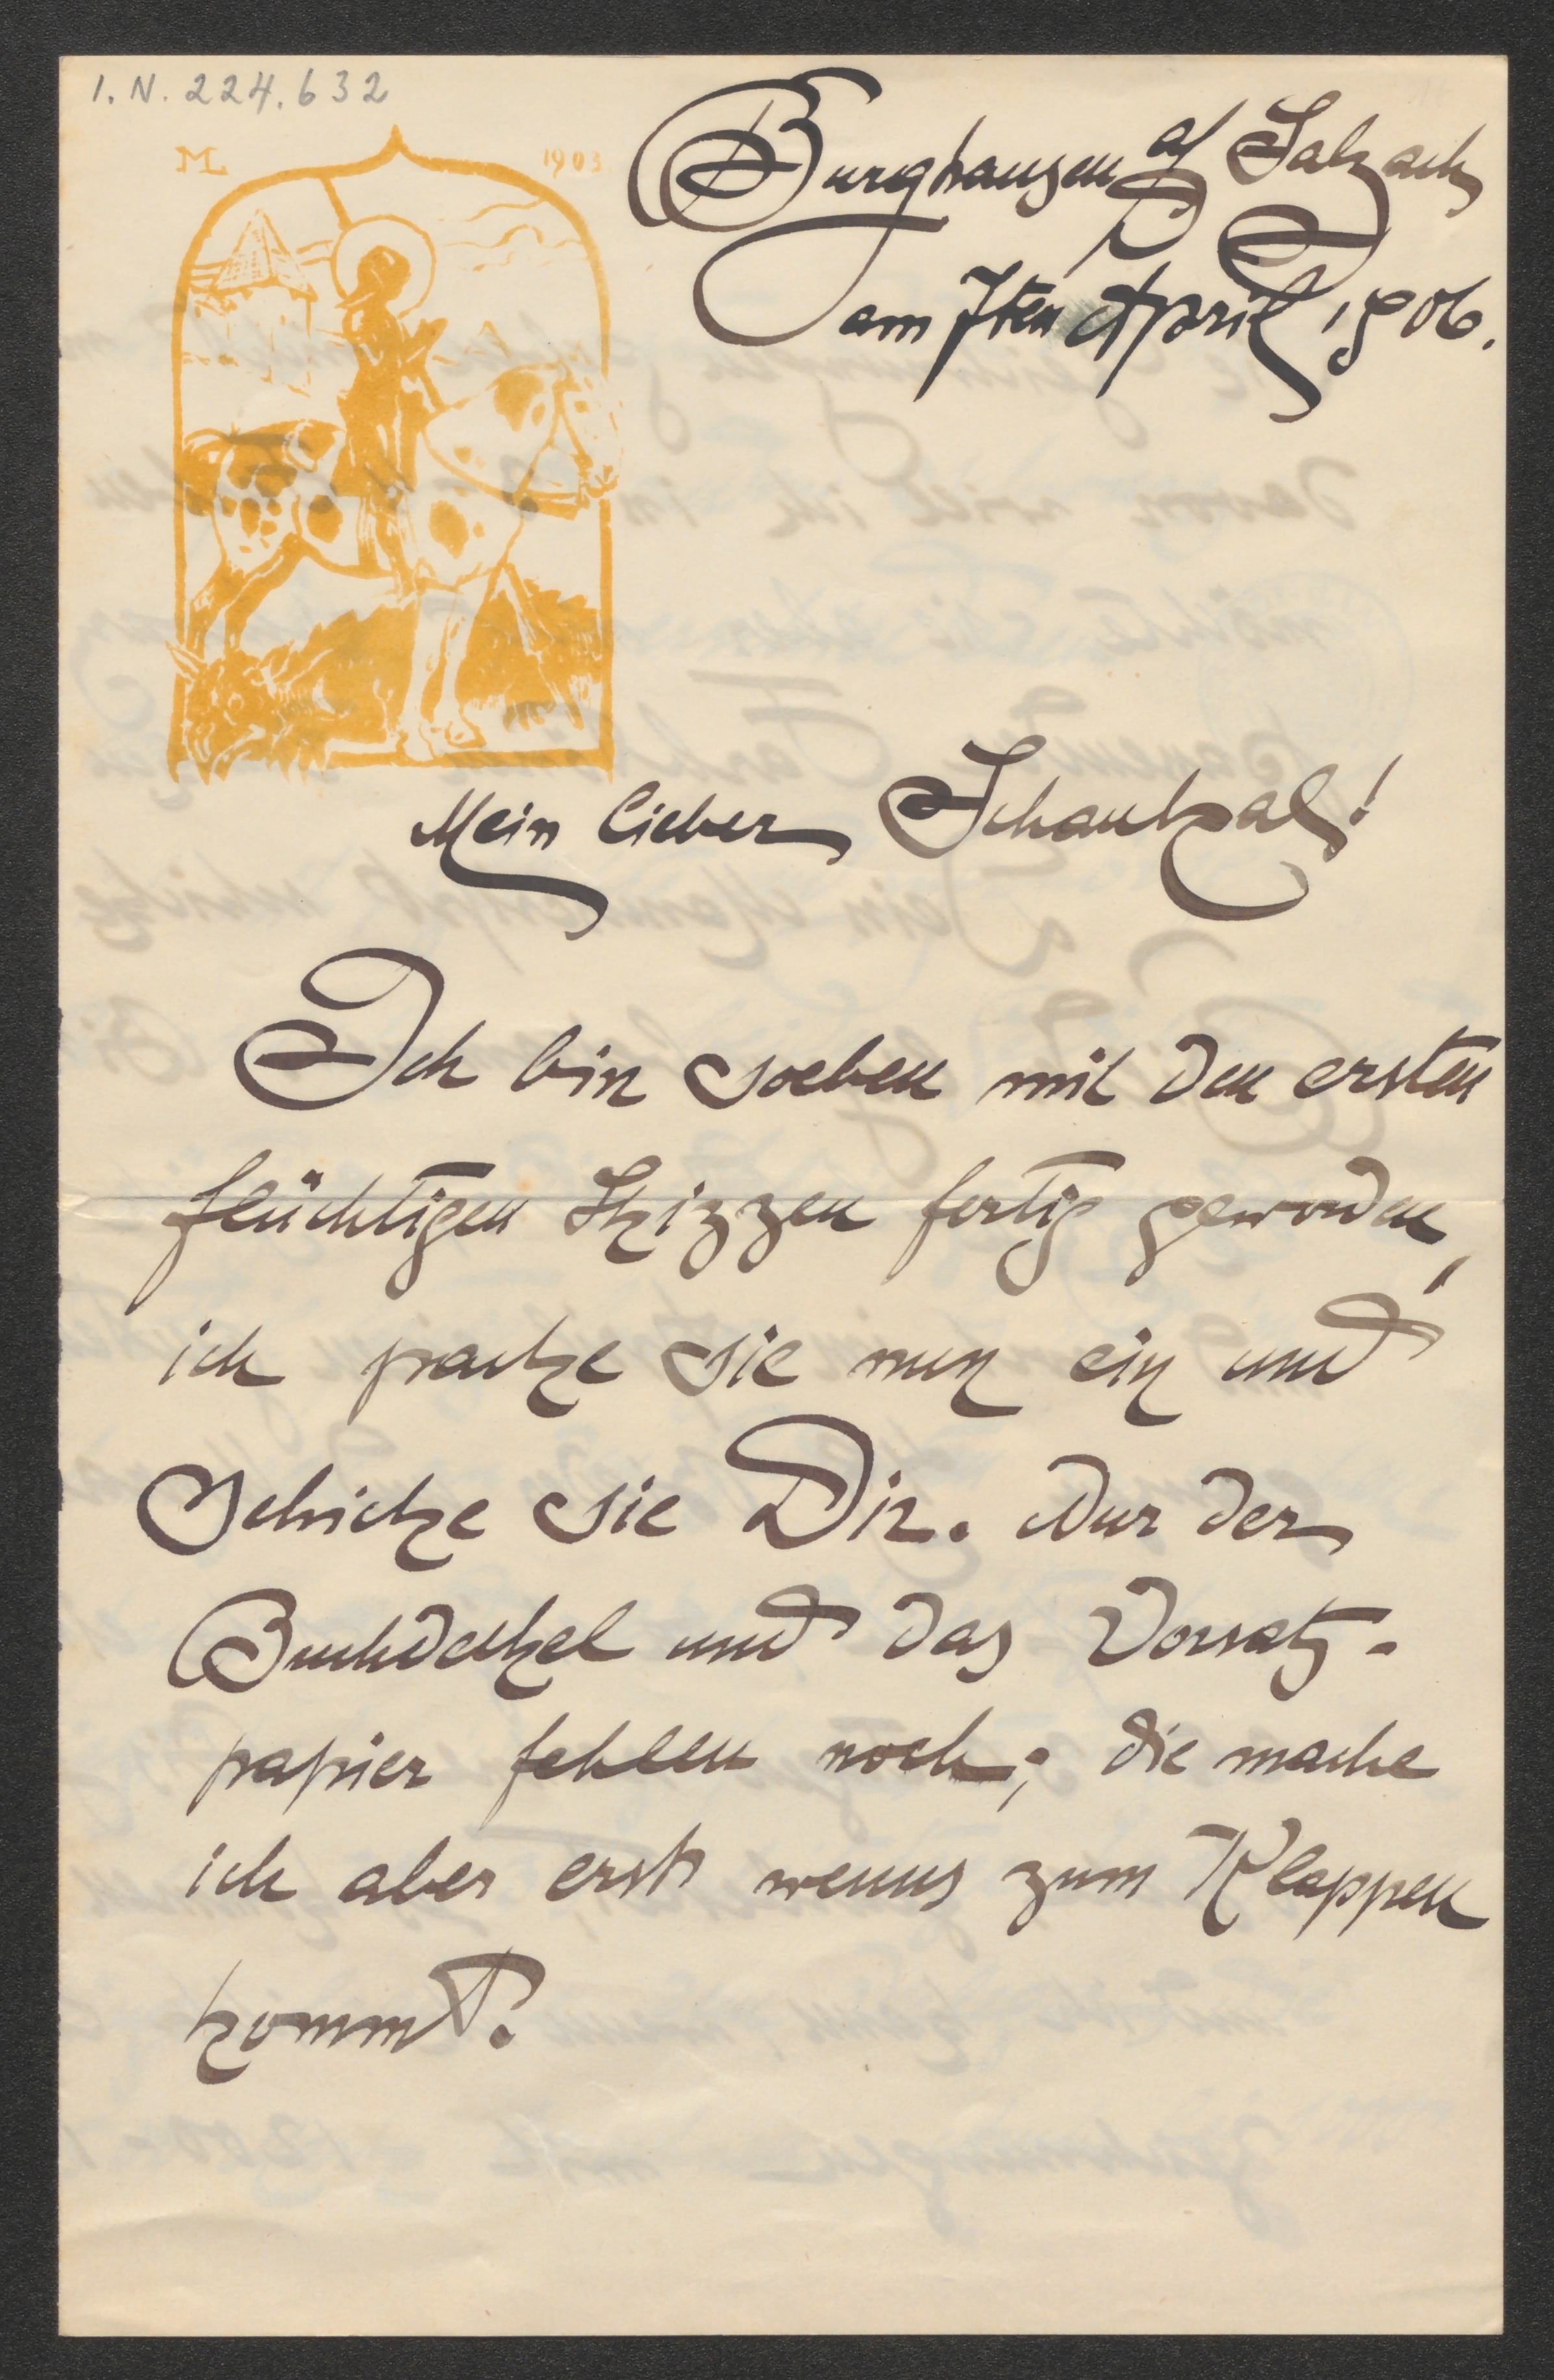 I. N. 224.632
M 1903
Burghausen a/ Salzach
am 7ten April 1906.
Mein lieber Schaukal!
Ich bin soeben mit den ersten
flüchtigen Skizzen fertig geworden,
ich packe sie nun ein und
schicke sie Dir. Nur der
Buchdeckel und das Vorsatz-
papier fehlen noch; die mache
ich aber erst wenns zum Klappen
kommt.